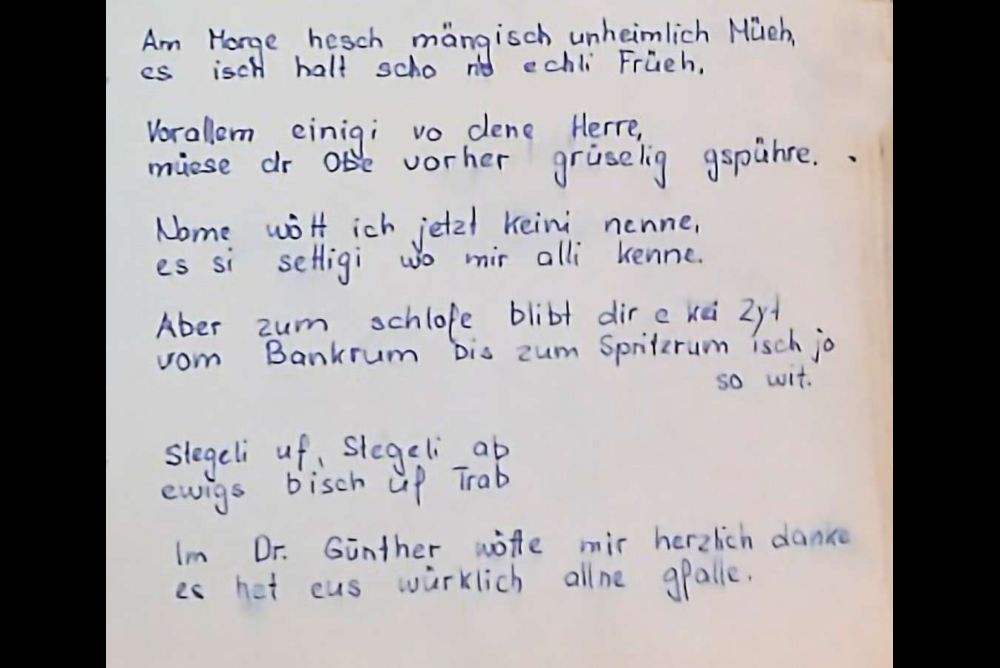 Am Morge hesch mängisch unheimlich Müeh,
es isch halt scho no echli Früeh.
Vorallem einigi vo dene Herre,
müese dr Obe vorher grüselig gspühre.
Nome wött ich jetzt keini nenne,
es si settigi wo mir alli kenne.
Aber zum schlofe blibt dir e kei Zyt
vom Bankrum bis zum Spritzrum isch jo
so wit.
Stegeli uf, Stegeli ab
ewigs bisch uf Trab
Im Dr. Günther wötte mir herzlich danke
es het eus würklich allne gfalle.